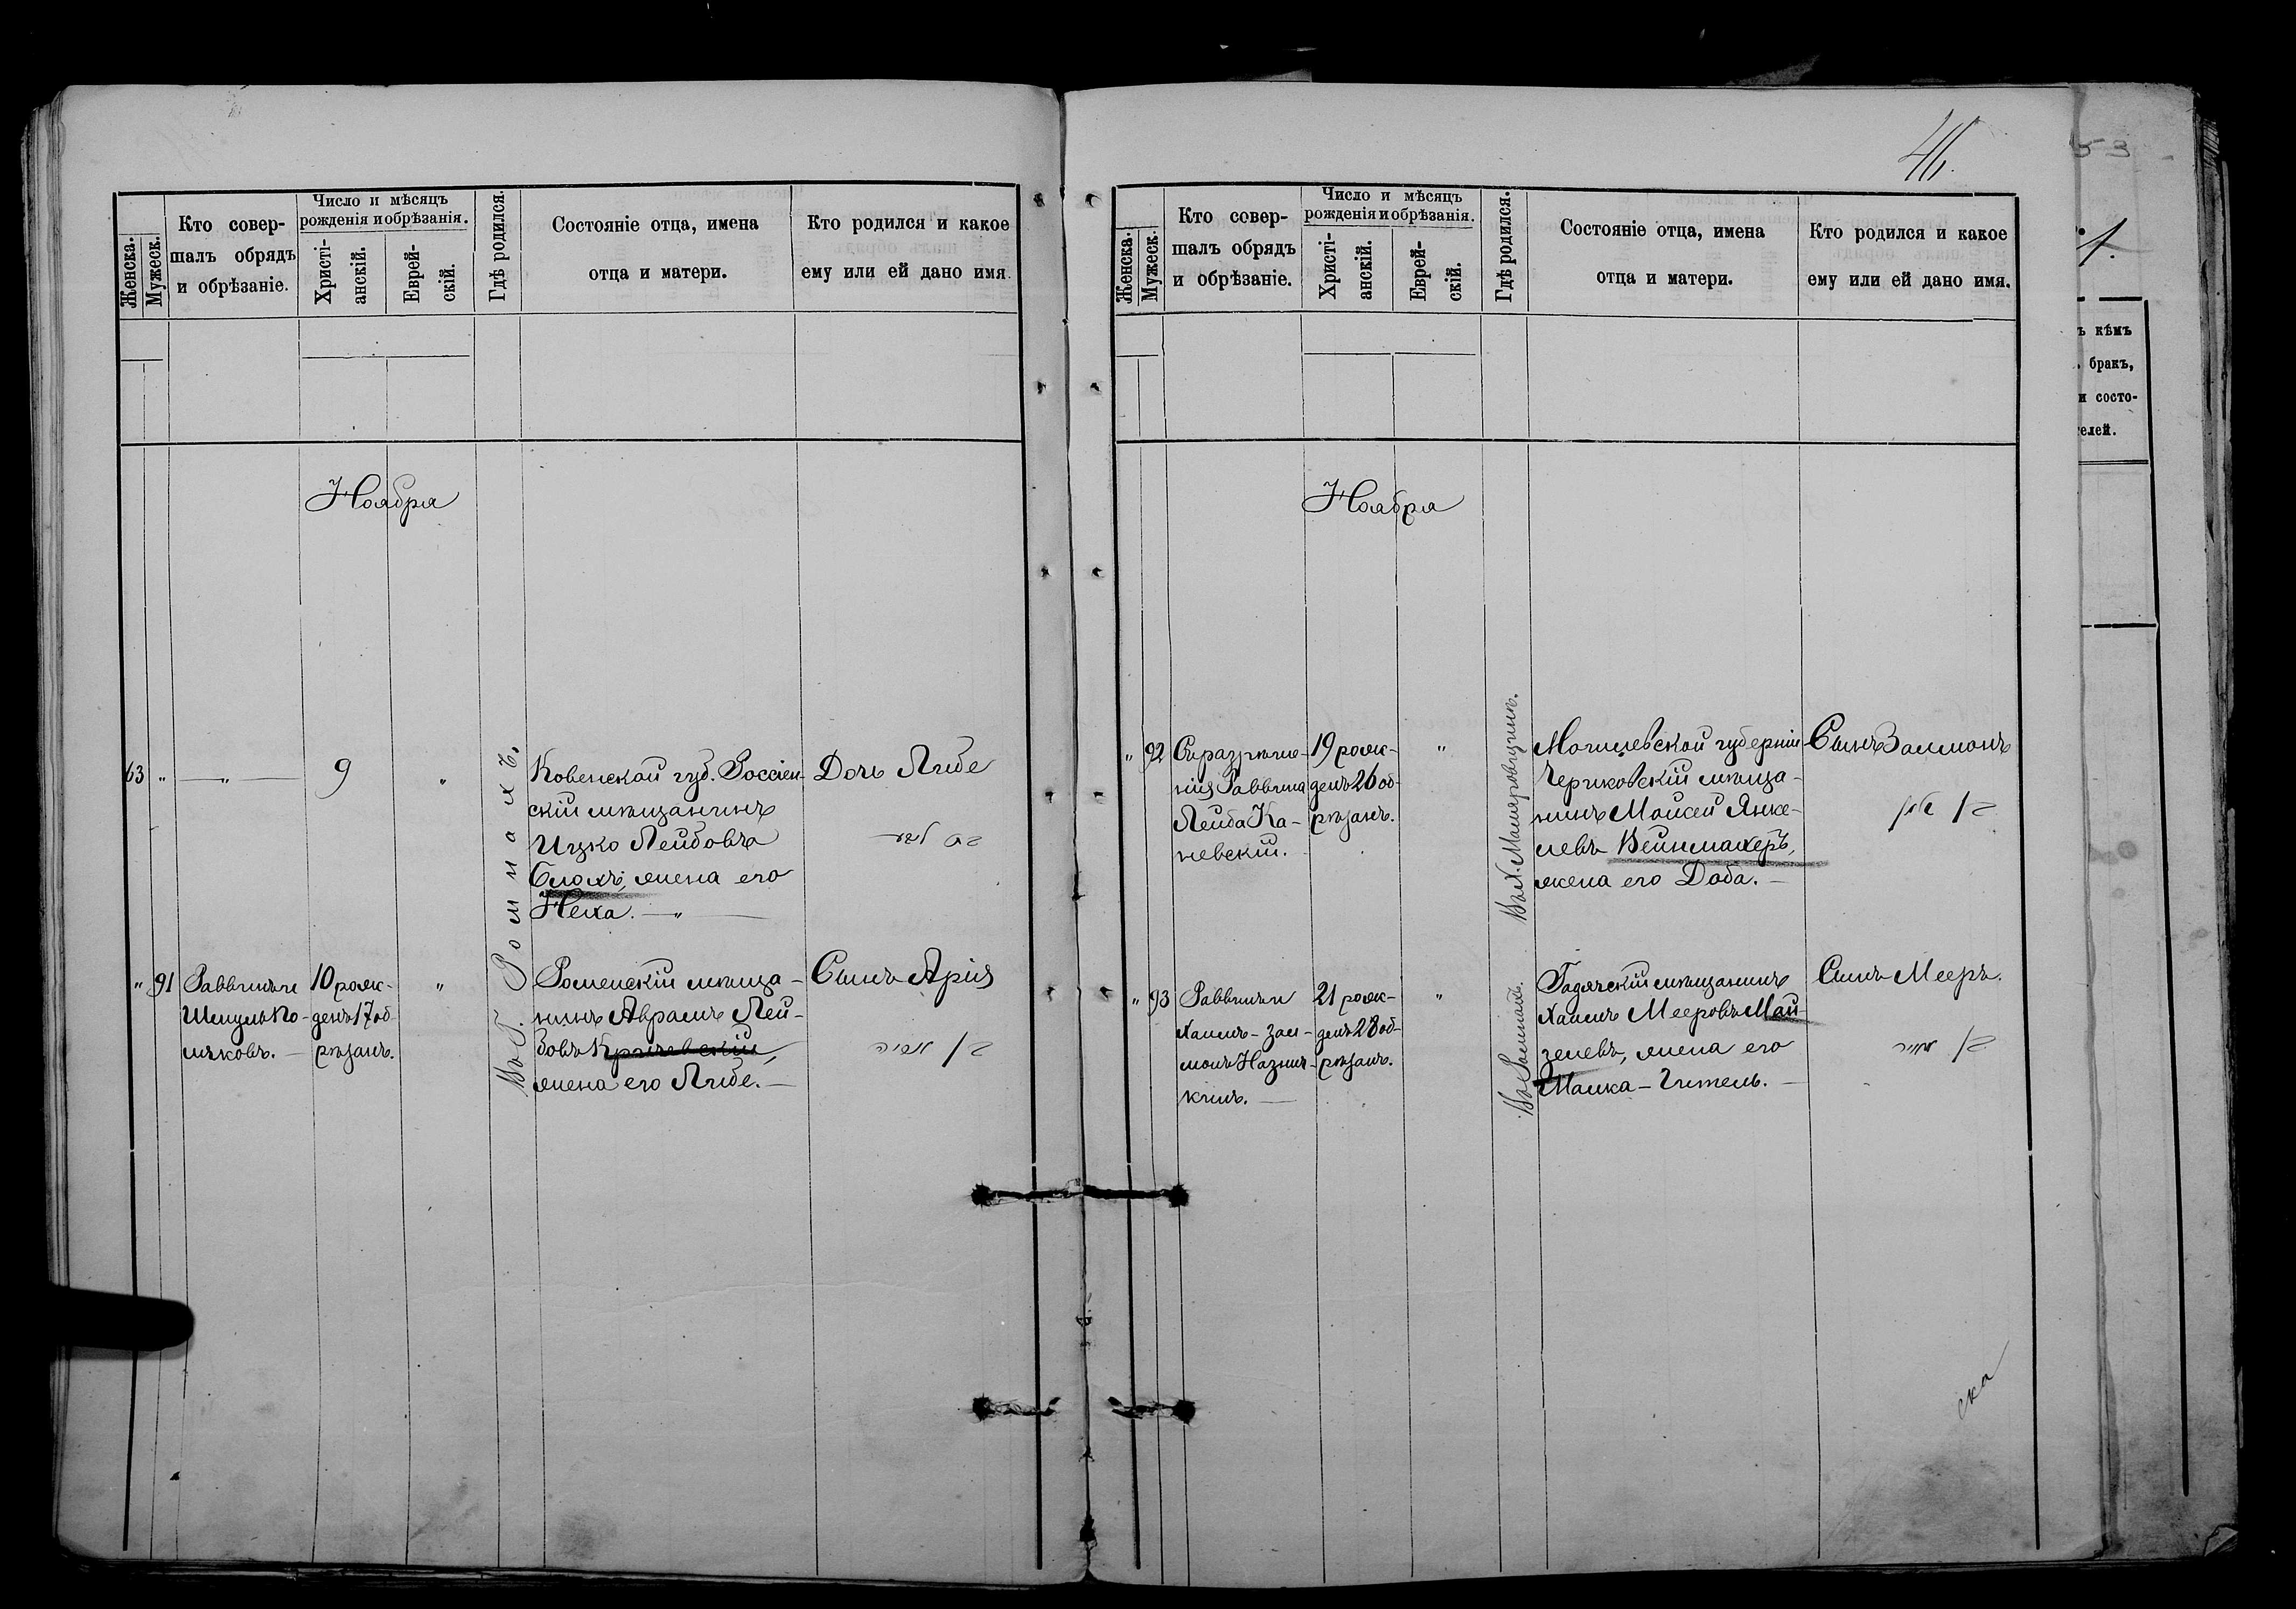 Женска.
Мужеск.
Кто совер-
шалъ обрядъ
и обрѣзаніе.
Число и мѣсяцъ
рожденія и обрѣзанія.
Христі-
анскій.
Еврей-
скій.
Гдѣ родился.
Состояніе отца, имена
отца и матери.
Кто родился и какое
ему или ей дано имя.
Ноября
63 " — " — 9 "
Ковенской губ. Россіен-
скій мѣщанинъ
Ицко Лейбовъ
Блохъ, жена его
Неха. — " —
Дочь Либе
בת ליבע
Въ Г. Ромнахъ,
" 91
Раввинъ и
Шмуль По-
ляковъ. —
10 рож-
денъ 17 об-
рѣзанъ.
"
Роменскій мѣща-
нинъ Аврамъ Лей-
бовъ Кричевскій,
жена его Либе. —
Сынъ Арія
בן אריה
41.
Женска.
Мужеск.
Кто совер-
шалъ обрядъ
и обрѣзаніе.
Число и мѣсяцъ
рожденія и обрѣзанія.
Христі-
анскій.
Еврей-
скій.
Гдѣ родился.
Состояніе отца, имена
отца и матери.
Кто родился и какое
ему или ей дано имя.
Ноября
" 92
Съ разрѣше-
нія Раввина
Лейба Ка-
невскій.
19 рож-
денъ 26 об-
рѣзанъ.
"
Могилевской губерніи
Чериковскій мѣща-
нинъ Моисей Янке-
левъ Вейнмахеръ,
жена его Доба. —
Сынъ Залмонъ
בן זלמן
" 93
Раввинъ и
Хаимъ-Зал-
монъ
21 рож-
денъ 28 об-
рѣзанъ.
"
Въ Ромнахъ.
Гадячскій мѣщанинъ
Хаимъ Мееровъ Май-
зелевъ, жена его
Малка-Гитель. —
Сынъ Мееръ.
בן מאיר
ска
53
1.
ъ кѣмъ
бракъ,
и состо-
елей.